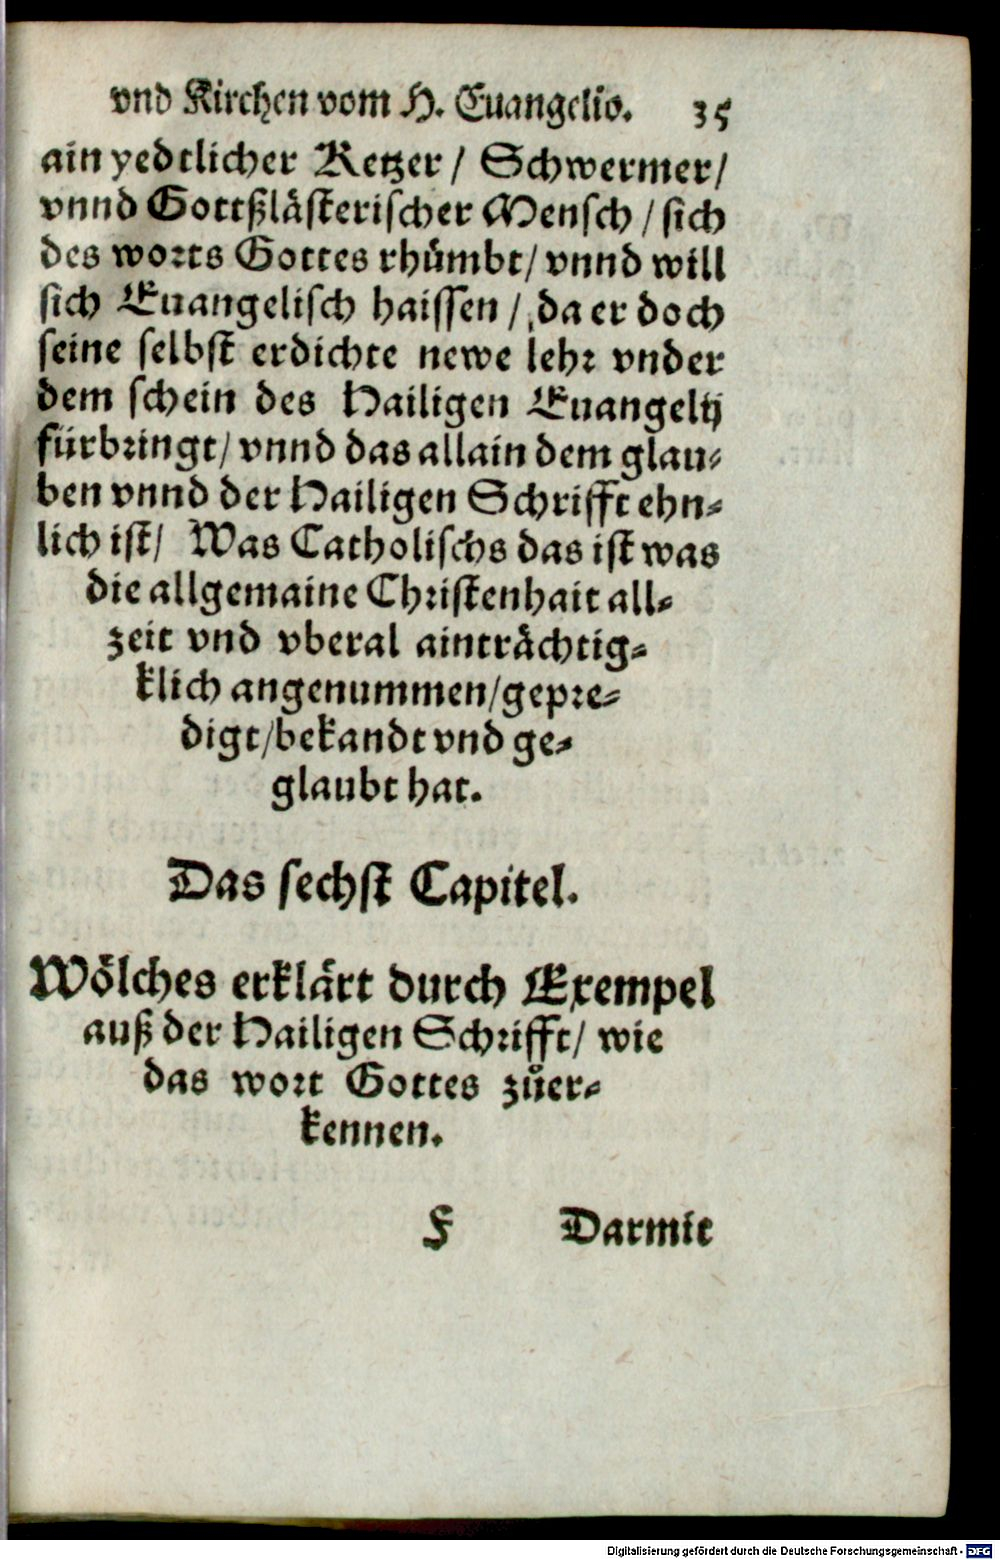 vnd Kirchen vom H. Euangelio. 35
ain yedtlicher Ketzer / Schwermer /
vnnd Gottßlästerischer Mensch / sich
des worts Gottes rhůmbt / vnnd will
sich Euangelisch haissen / da er doch
seine selbst erdichte newe lehr vnder
dem schein des Hailigen Euangelij
fürbringt / vnnd das allain dem glau-
ben vnnd der Hailigen Schrifft ehn-
lich ist / Was Catholischs das ist was
die allgemaine Christenhait all-
zeit vnd vberal ainträchtig-
klich angenummen / gepre-
digt / bekandt vnd ge-
glaubt hat.
Das sechst Capitel.
Wölches erklärt durch Exempel
auß der Hailigen Schrifft / wie
das wort Gottes zůer-
kennen.
F Darmit
Digitalisierung gefördert durch die Deutsche Forschungsgemeinschaft - DFG